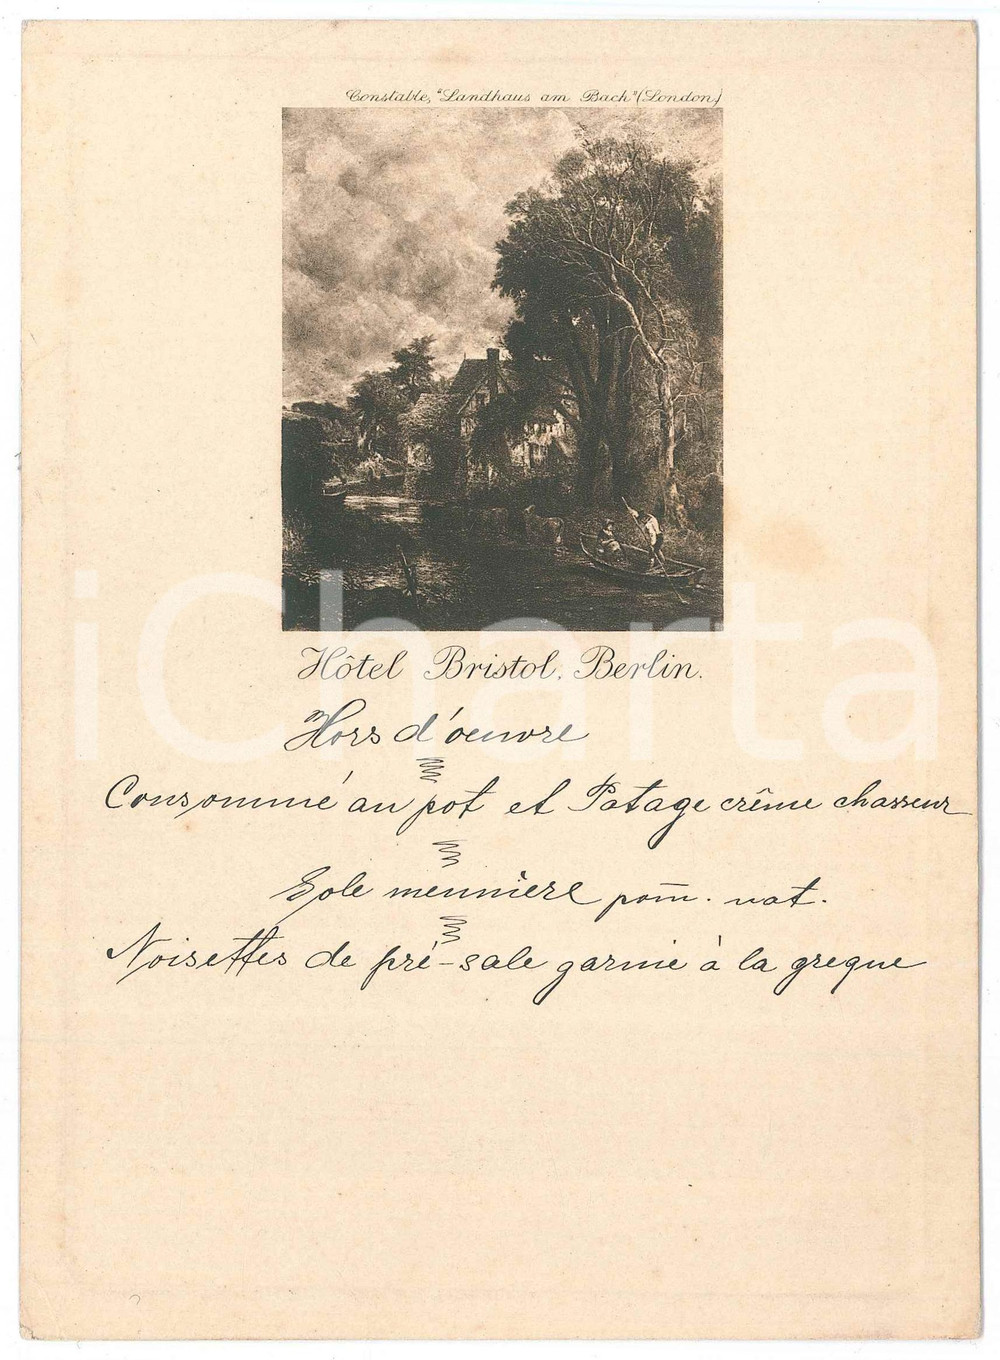 Constable, "Landhaus am Bach" (London)
Hôtel Bristol, Berlin.
Hors d'oeuvre
Consommé au pot et Potage crême chasseur
Sole meunière pom̄. nat.
Noisettes de pré-sale garnie à la greque
iCharta